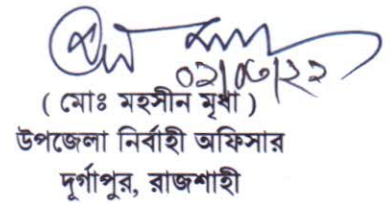 ( মোঃ মহসীন মৃধা )
উপজেলা নির্বাহী অফিসার
দূর্গাপুর, রাজশাহী